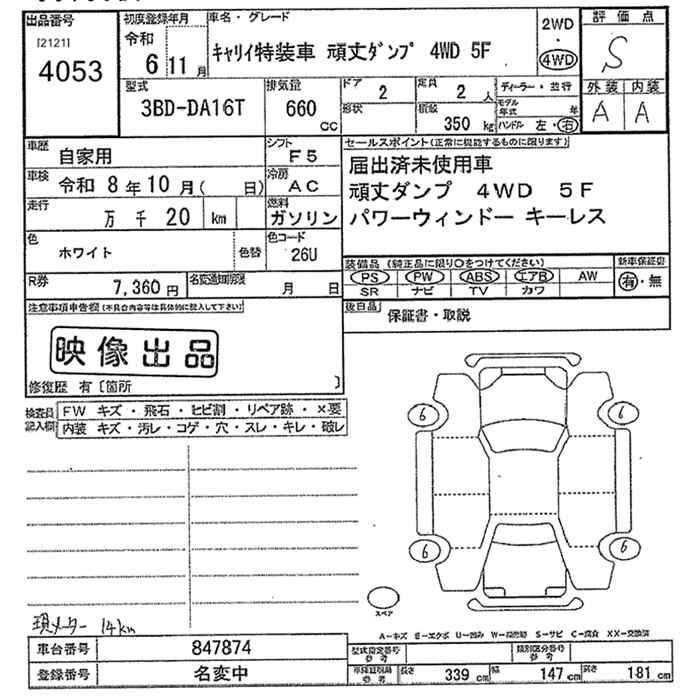 出品番号
[2121]
4053
初度登録年月
令和
6 11 月
車名・グレード
キャリイ特装車 頑丈ダンプ 4WD 5F
2WD
・
4WD
評価点
S
外装 内装
A A
型式
3BD-DA16T
排気量
660 cc
ドア
2
形状
定員
2 人
積載
350 kg
ディーラー・並行
モデル年式 年
ハンドル 左・右
車歴
自家用
シフト
F5
車検
令和 8 年 10 月( 日)
冷房
AC
走行
万 千 20 km
燃料
ガソリン
色
ホワイト
色替
色コード
26U
R券
7,360 円
名変通知期限
月 日
セールスポイント(正常に機能するものに限ります)
届出済未使用車
頑丈ダンプ 4WD 5F
パワーウィンドー キーレス
装備品(純正品に限り○をつけてください)
PS PW ABS エアB AW
SR ナビ TV カワ
新車保証書
有・無
後日品
保証書・取説
注意事項申告欄(不具合内容等は具体的に記入して下さい)
映像出品
修復歴 有〔箇所 〕
検査員記入欄
FW キズ・飛石・ヒビ割・リペア跡・×要
内装 キズ・汚レ・コゲ・穴・スレ・キレ・破レ
6 6
6 6
スペア
現メーター 14km
A−キズ E−エクボ U−凹み W−補修跡 S−サビ C−腐食 XX−交換済
車台番号
847874
登録番号
名変中
型式指定番号
参考
類別区分番号
参考
長さ 339 cm 幅 147 cm 高さ 181 cm